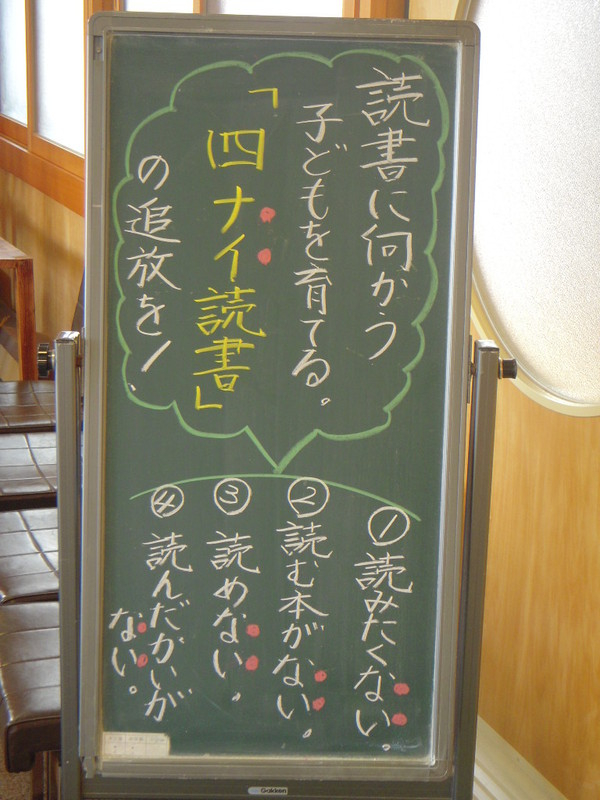 読書に何かう
子どもを育てる。
「四ナイ読書」
の追放を！
①読みたくない。
②読む本がない。
③読めない。
④読んだかいが
ない。
Gakken